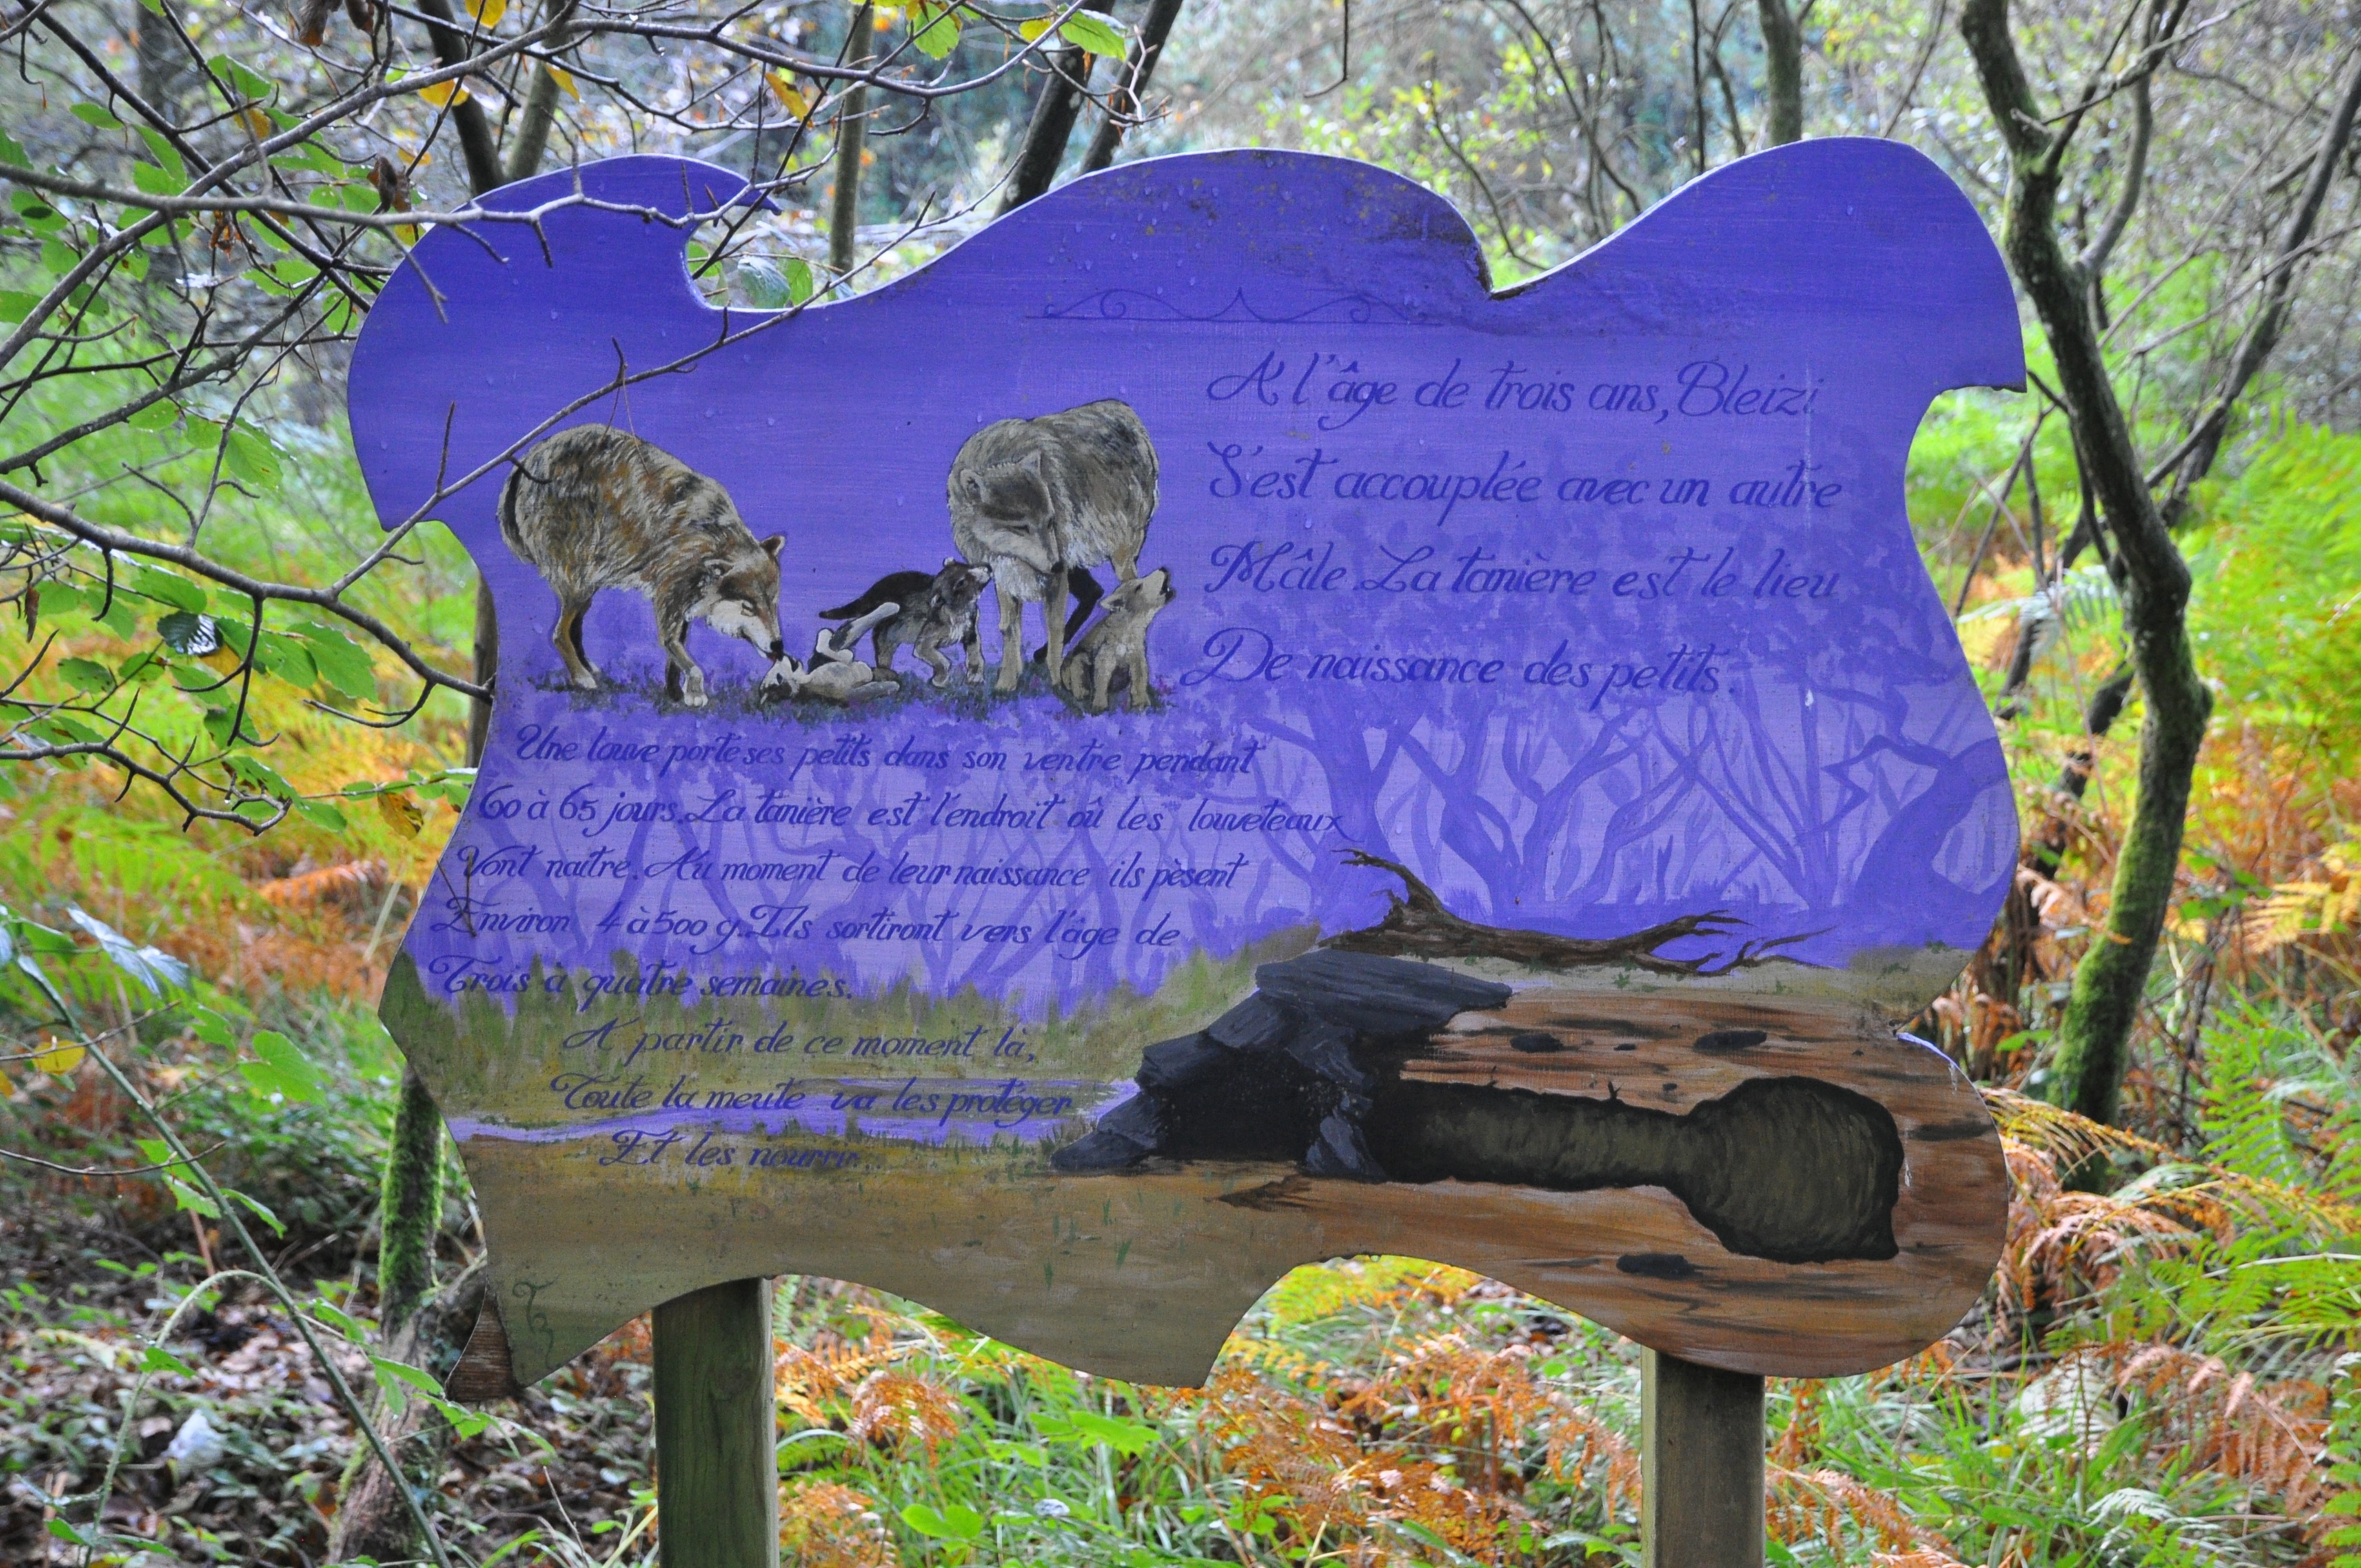 A l'âge de trois ans, Bleizi
S'est accouplée avec un autre
Mâle. La tanière est le lieu
De naissance des petits.
Une louve porte ses petits dans son ventre pendant
60 à 65 jours. La tanière est l'endroit où les louveteaux
Vont naître. Au moment de leur naissance ils pèsent
Environ 4 à 500 g. Ils sortiront vers l'âge de
Trois à quatre semaines.
A partir de ce moment là,
Toute la meute va les protéger
Et les nourrir.